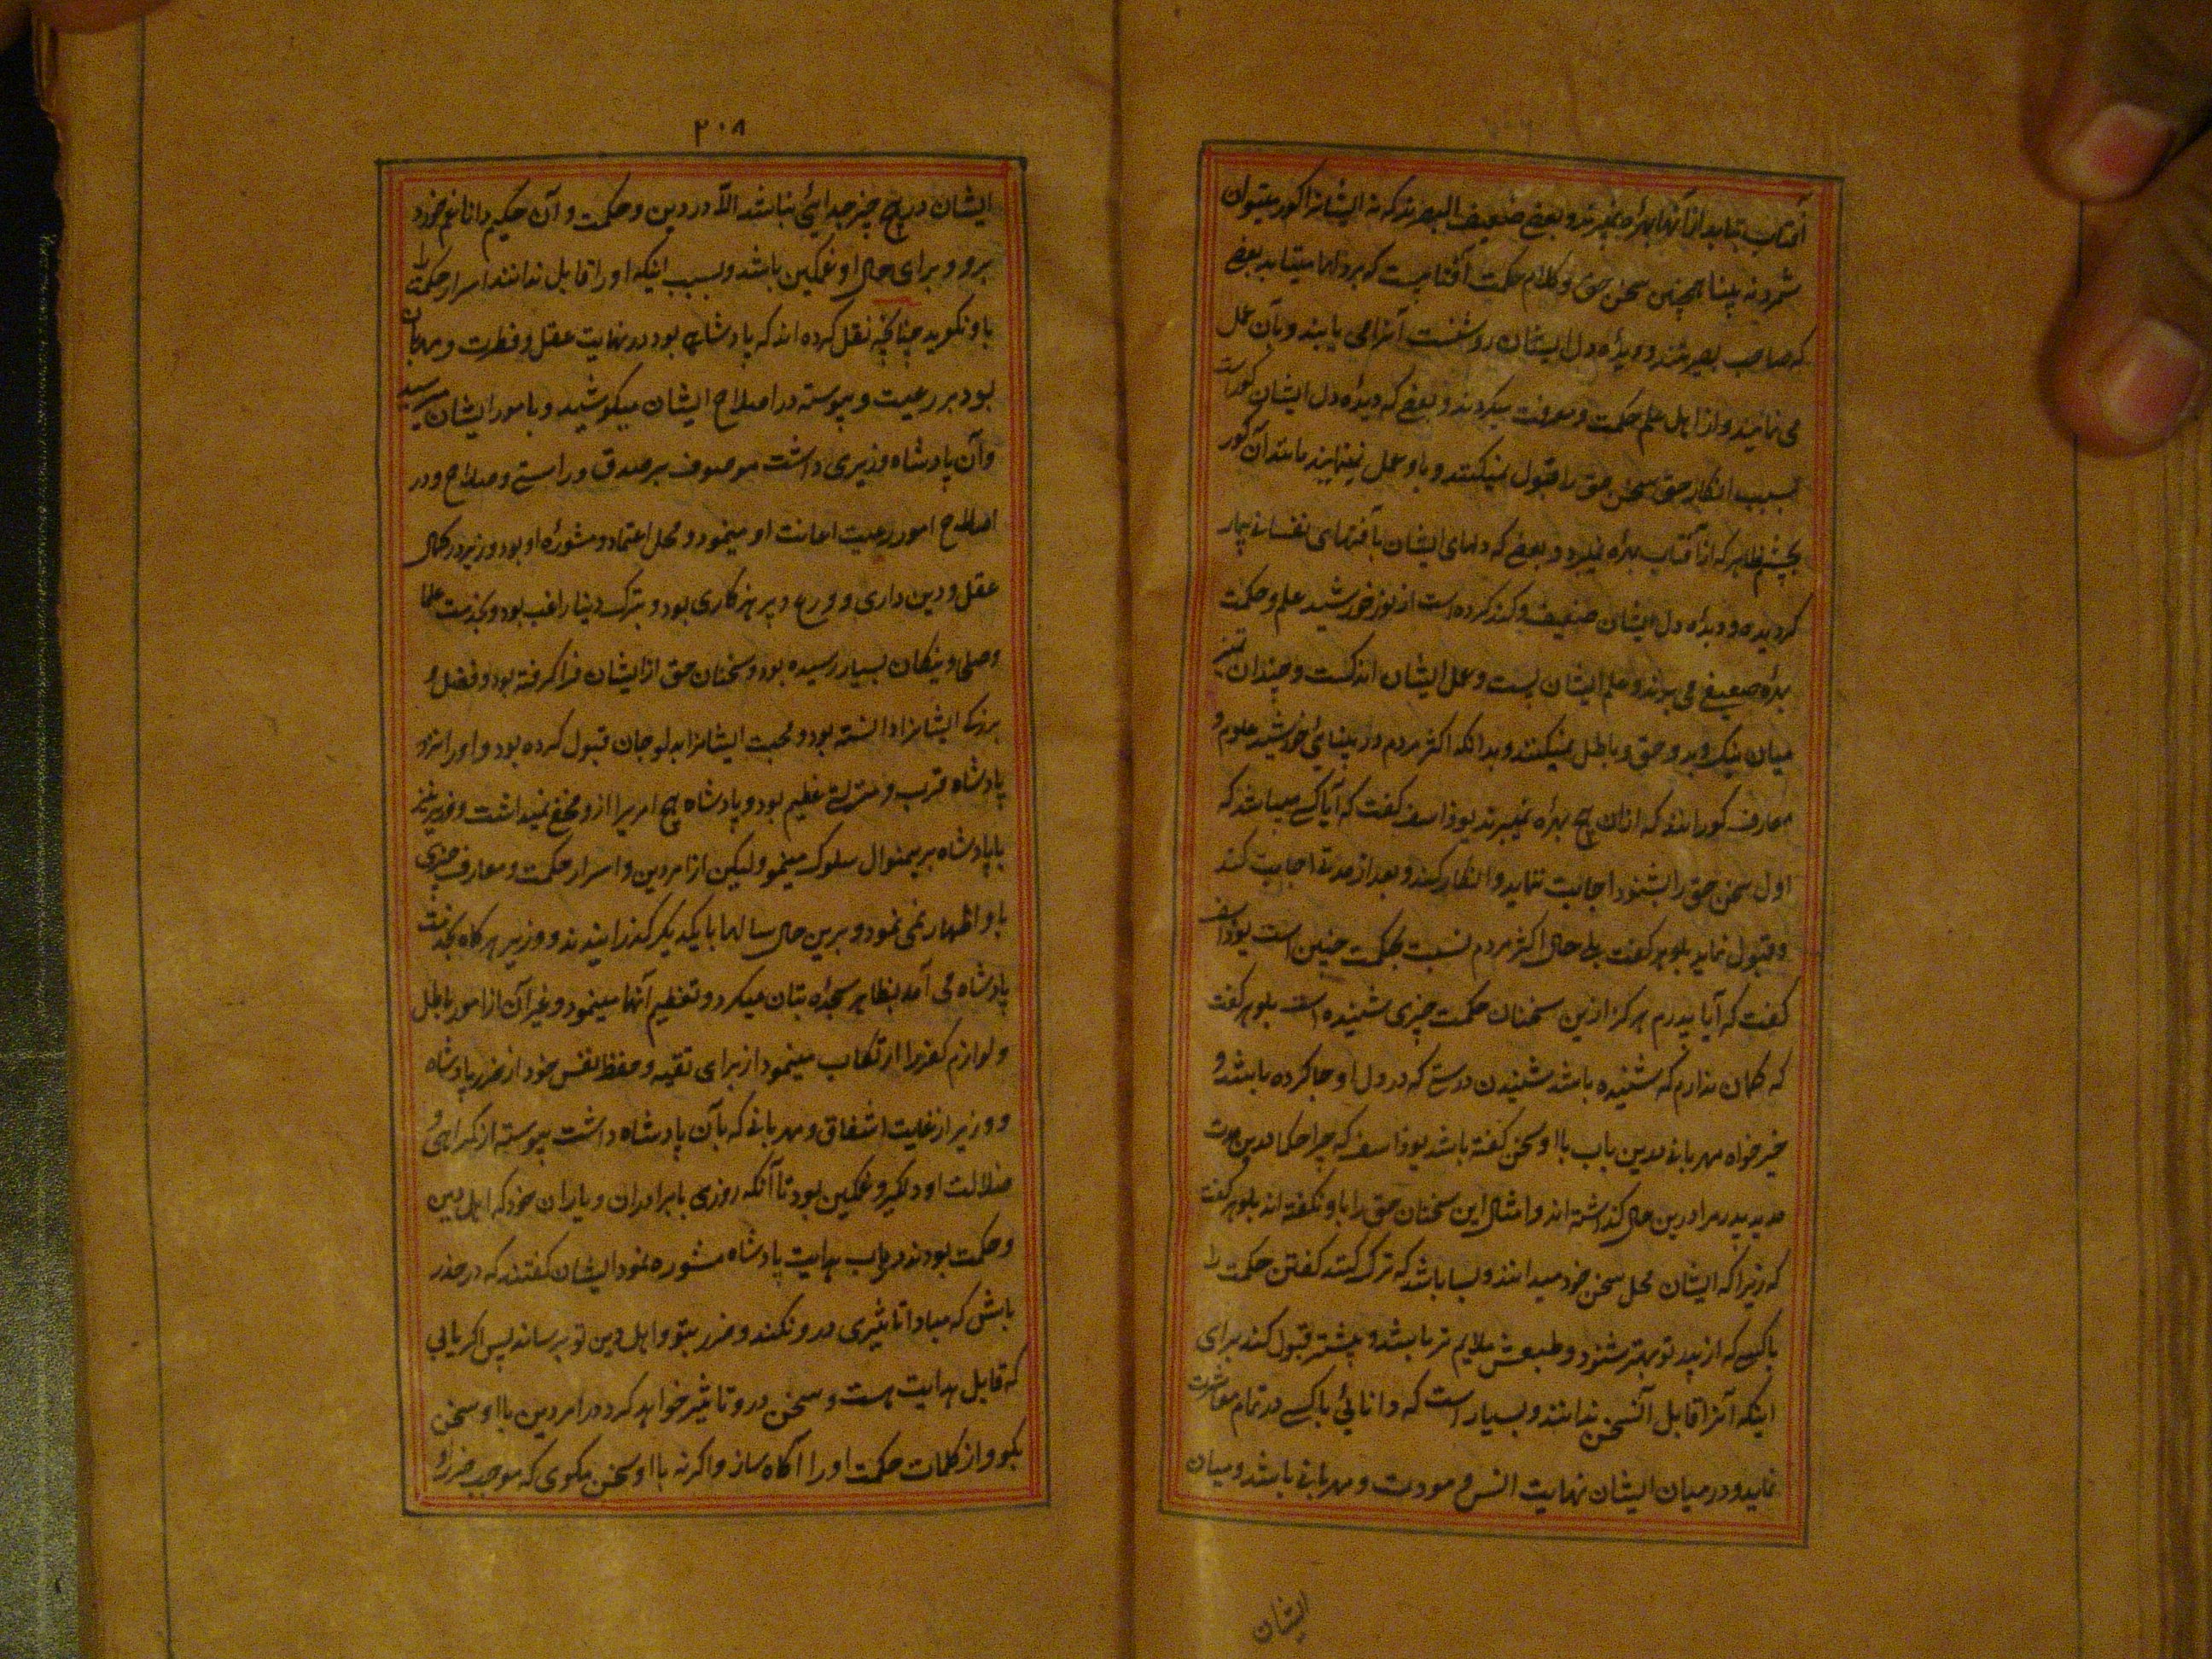 آفتاب بتابد از آنها بهره نمیبرند و بعضی ضعیف البصرند که نه ایشانرا کور میتوان
شمرد نه بینا همچنین سخن حق و کلام حکمت آفتابیست که بر دلها میتابد بعضی
که صاحب بصیرتند و دیدۀ دل ایشان روشنست آنرا می یابند و بآن عمل
می نمایند و از اهل علم حکمت و معرفت میکردند و بعضی که دیدۀ دل ایشان کور است
بسبب انکار حق سخن حق را قبول نمیکنند و باو عمل نمینمایند مانند آن کور
بچشم ظاهر که از آفتاب بهره نمیبرد و بعضی که دلهای ایشان بآفتهای نفسانی بیمار
کردیده و دیدۀ دل ایشان ضعیف و کند کرده است از نور خورشید علم و حکمت
بهرۀ ضعیفی می برند و علم ایشان پست و عمل ایشان اندکست و چندان تمیز
میان نیک و بد و حق و باطل نمیکنند و بدانکه اکثر مردم در بینائی خورشید علوم و
معارف کورانند که از ان هیچ بهره نمیبرند یوذاسف کفت که آیا کسی میباشد که
اول سخن حق را بشنود اجابت ننماید و انکار کند و بعد از مدتی اجابت کند
و قبول نماید بلوهر کفت بلی حال اکثر مردم نسبت بحکمت چنین است یوذاسف
کفت که آیا پدرم هرکز ازین سخنان حکمت چیزی شنیده است بلوهر کفت
که کمان ندارم که شنیده باشد شنیدن درستی که در دل او جا کرده باشد و
خیرخواه مهربانی درین باب باو سخن کفته باشد یوذاسف که چرا حکما درین مدت
مدید پدر مرا درین حال کذاشته اند و امثال این سخنان حق را باو نکفته اند بلوهر کفت
که زیرا که ایشان محل سخن خود میدانند و بسا باشد که ترک کنند کفتن حکمت را
با کسی که از پدر تو بهتر شنود و طبعش ملایم تر باشد و بیشتر قبول کند برای
اینکه آنرا قابل آنسخن ندانند و بسیار است که دانائی با کسی در تمام معاشرت
نماید و در میان ایشان نهایت انس و مودت و مهربانی باشد و میان
ایشان
۲۰۸
ایشان در هیچ چیز جدائی نباشد الا در دین و حکمت و آن حکیم دانا غم خورد
برو و برای حال او غمکین باشد و بسبب اینکه او را قابل ندانند اسرار حکمت را
باو نکوید چنانچه نقل کرده اند که پادشاهی بود در نهایت عقل و فطرت و مهربان
بود بر رعیت و پیوسته در اصلاح ایشان میکوشید و بامور ایشان میرسید
و آن پادشاه وزیری داشت موصوف بر صدق و راستی و صلاح و در
اصلاح امور رعیت اعانت او مینمود و محل اعتماد و مشورۀ او بود وزیر در کمال
عقل و دین داری و ورع و پرهیزکاری بود و بترک دنیا راغب بود و بخدمت علما
و صلحا و نیکان بسیار رسیده بود و سخنان حق از ایشان فرا کرفته بود و فضل و
بزرکی ایشانرا دانسته بود و محبت ایشانرا بدل و جان قبول کرده بود و او را نزد
پادشاه قرب و منزلتی عظیم بود و پادشاه هیچ امریرا ازو مخفی نمیداشت و وزیر نیز
با پادشاه برینمنوال سلوک مینمود و لیکن از امر دین و اسرار حکمت و معارف چیزی
باو اظهار نمی نمود و برین حال سالها با یکدیکر کذرانیدند و وزیر هرکاه بخدمت
پادشاه می آمد بظاهر سجدۀ بتان میکرد و تعظیم آنها مینمود و غیر آن از امور باطل
و لوازم کفر را ارتکاب مینمود از برای تقیه و حفظ نفس خود از ضرر پادشاه
و وزیر از غایت اشفاق و مهربانی که بآن پادشاه داشت پیوسته از کمراهی و
ضلالت او دلکیر و غمکین بود تا آنکه روزی با برادران و یاران خود که اهل دین
و حکمت بودند در باب هدایت پادشاه مشوره نمود ایشان کفتند که در حذر
باش که مبادا تاثیری درو نکند و ضرر بتو و اهل دین تو برساند پس اکر یابی
که قابل هدایت هست و سخن درو تاثیر خواهد کرد در امر دین با او سخن
بکو و از کلمات حکمت او را آکاه ساز و اکر نه با او سخن مکوی که موجب ضرر او